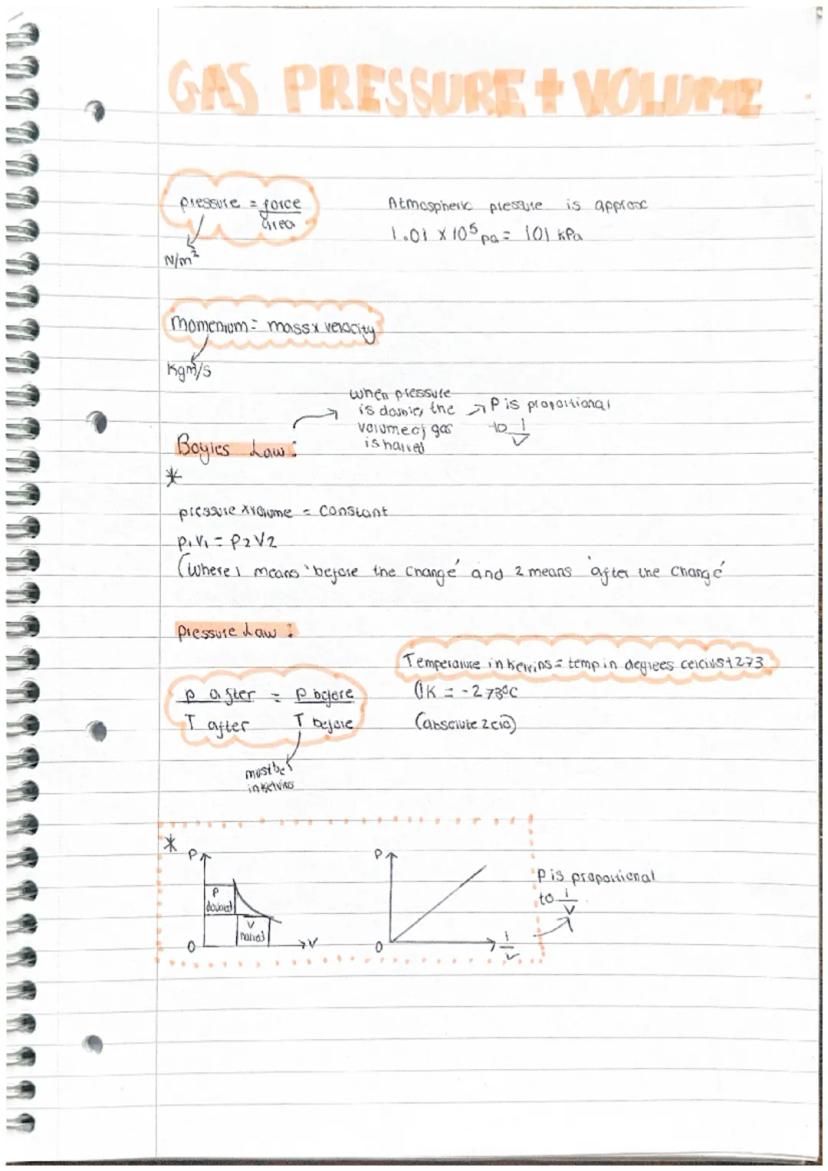 GAS PRESSURE + VOLUME
pressure = force
area
N/m²
Atmospheric pressure is approx
1.01 x 10⁵ pa = 101 kPa
Momentum = mass x velocity
Kgm/s
Boyles Law:
when pressure
is doubles the
volume of gas
is halved
P is proportional
to 1
V
*
pressure x volume = constant
P₁V₁ = P2V2
(where 1 means 'before the change' and 2 means 'after the change'
pressure Law:
P after = P before
T after T before
must be
in kelvins
Temperature in kelvins = temp in degrees celcius + 273
0K = -273°C
(absolute zero)
*
P
P
doubled
V
halved
0
V
P
0
1
V
P is proportional
to 1
V